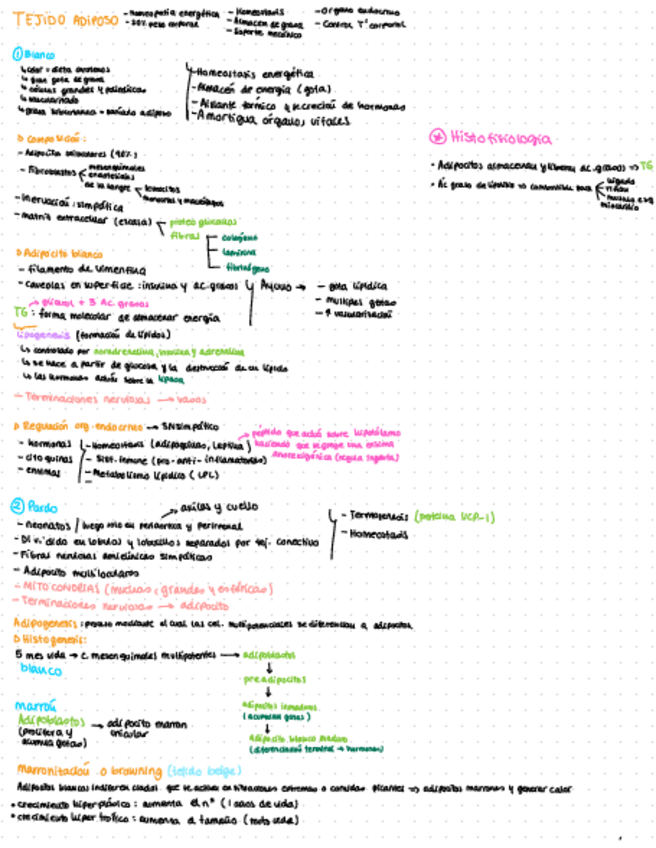 TEJIDO ADIPOSO - Homeopatia energética - Homeostasis - Organo endocrino
- 20% peso corporal - Almacen de grasa - Control Tª corporal
- Soporte mecánico
① Blanco
↳ color = dieta carotenos
↳ gran gota de grasa
↳ células grandes y poliédricas
↳ vascularizado
↳ grasa subcutánea = panículo adiposo
- Homeostasis energética
- Almacén de energía (gota)
- Aislante térmico y secreción de hormonas
- Amortigua órganos vitales
Composición:
- Adipocito uniloculares (90%)
- Fibroblastos mesenquimales
endoteliales
de la sangre leucocitos
monocitos y macrófagos
- inervación: simpática
- matriz extracelular (escasa) proteoglucanos
fibras colágeno
laminina
fibrinógeno
Adipocito blanco
- filamento de vimentina
- caveolas en superficie: insulina y ac. grasos Ayuno → - gota lipídica
- multiples gotas
- ↑ vascularización
→ glicerol + 3 Ac. grasos
TG: forma molecular de almacenar energía
Lipogenesis (formación de lípidos)
↳ controlado por noradrenalina, insulina y adrenalina
↳ se hace a partir de glucosa y la destrucción de un lípido
↳ las hormonas actúan sobre la lipasa
- Terminaciones nerviosas → vasos
Regulación org. endocrino → SN simpático
- hormonas - Homeostasis (adipoquinas, leptina) → péptido que actúa sobre hipotálamo
haciendo que segregue una encima
anorexigénica (regula ingesta)
- citoquinas - Sist. inmune (pro-anti-inflamatorias)
- enzimas - Metabolismo lipídico (LPL)
② Pardo
→ axilas y cuello
- neonatos / luego solo en periaortica y perirrenal
- Dividido en lobulos y lobulillos separados por tej. conectivo
- Fibras nerviosas amielínicas simpáticas
- Adipocito multiloculares
- MITOCONDRIAS (muchas, grandes y esféricas)
- Terminaciones nerviosas → adipocito
- Termogenesis (proteina UCP-1)
- Homeostasis
Adipogenesis: proceso mediante el cual las cel. multipotenciales se diferencian a adipocitos.
Histogenesis:
5 mes vida → c. mesenquimales multipotentes → adipoblastos
blanco
↓
preadipocitos
↓
adipocitos inmaduros
(acumulan gotas)
↓
Adipocito blanco maduro
(diferenciación terminal → hormonas)
marrón
Adipoblastos → adipocito marron
(prolifera y
acumula gotas)
marronización o browning (tejido beige)
Adipocitos blancos indiferenciados que se activan en situaciones extremas o comidas picantes ⇒ adipocitos marrones y generar calor
• crecimiento hiperplásico: aumenta el nº (1 años de vida)
• crecimiento hipertrófico: aumenta el tamaño (toda vida)
Histofisiología
• Adipocitos almacenan y liberan ac. grasos ⇒ TG
• Ac graso de lipólisis ⇒ combustible para hígado
riñon
musculo esq
miocardio